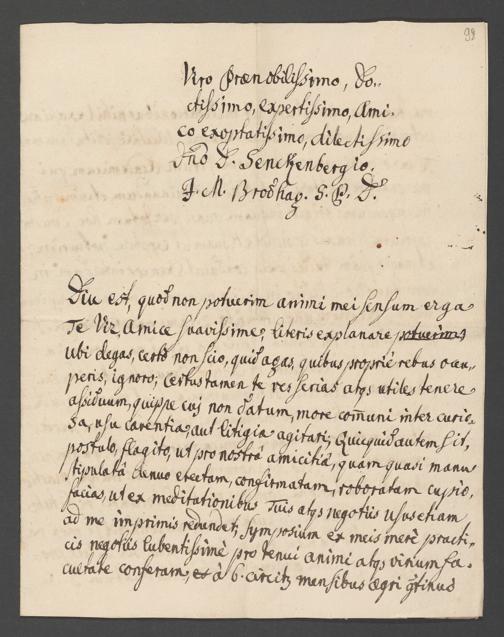 99
Viro Prænobilissimo, Do-
ctissimo, expertissimo, Ami-
co exoptatissimo, dilectissimo
Dnō D. Senckenbergio.
J. M. Brodhag. S. P. D.
Diu est, quod non potuerim animi mei sensum erga
Te Vir, Amice suavissime, literis explanare potuerim,
ubi degas, certò non scio, quid agas, quibus propriè rebus occu-
peris, ignoro; Certus tamen te res serias atqs utiles tenere
assiduum, quippe cui non datum, more communi inter curio-
sa, usu carentia, aut litigia agitari; Quicquid autem sit,
postulo, flagito, ut pro nostrâ amicitiâ, quam quasi manu
stipulatâ denuo erectam, confirmatam, roboratam cupio,
facias, ut ex meditationibus Tuis atqs negotiis usus etiam
ad me imprimis redundet, Symposium ex meis merè practi-
cis negotiis lubentissimè pro tenui animi atqs virium fa-
cultate conferam, à 6. circitr mensibus ægri